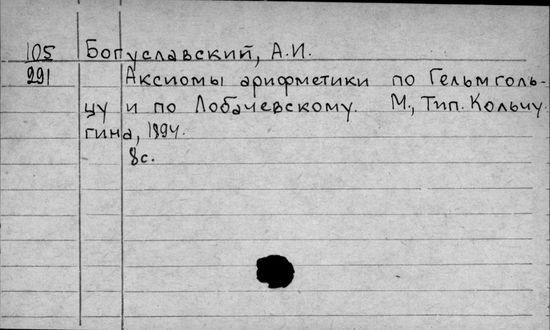 105 Богуславский, А.И.
291 Аксиомы арифметики по Гельмголь-
цу и по Лобачевскому. М., Тип. Кольчу
гина, 1894.
8с.